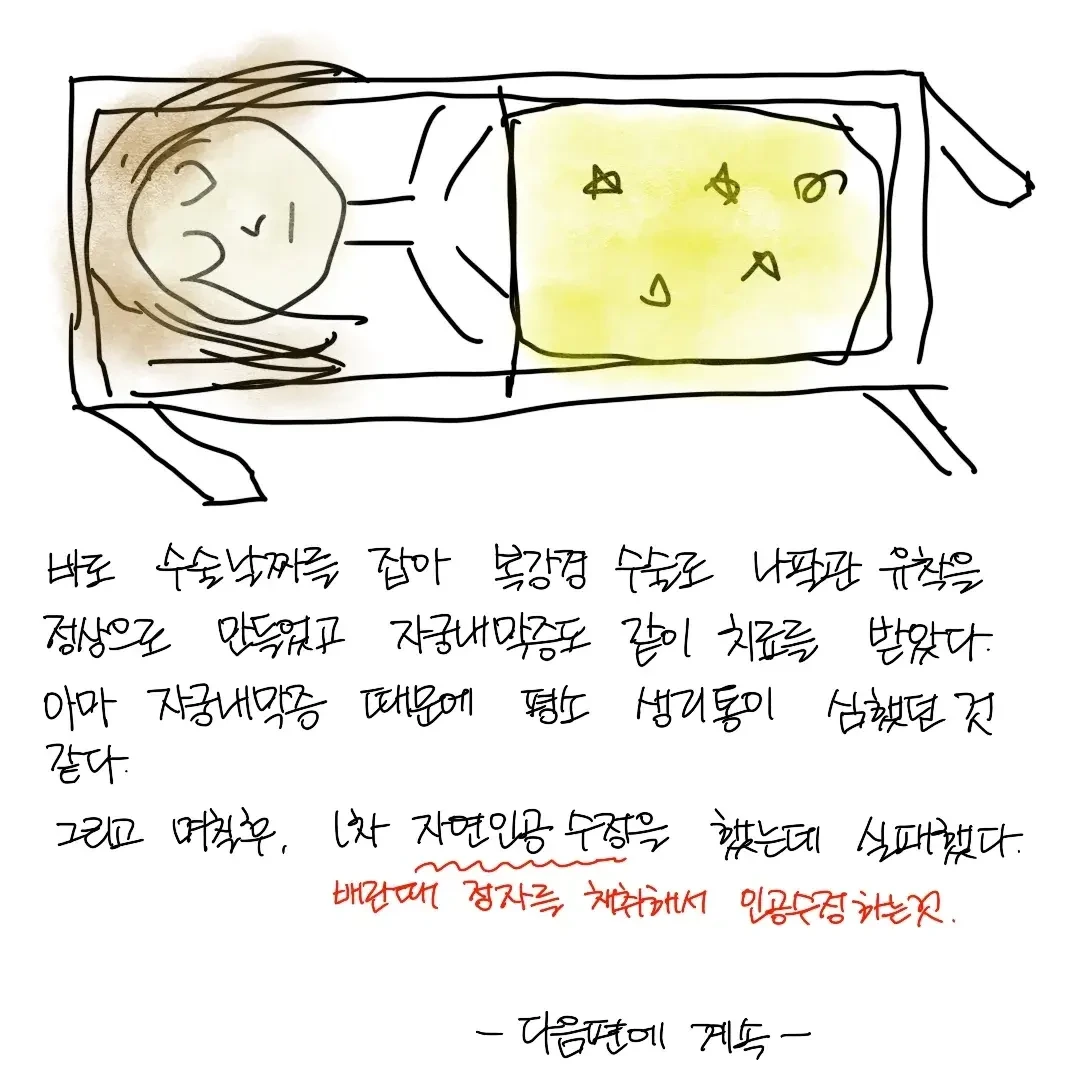 바로 수술날짜를 잡아 복강경 수술로 나팔관 유착을
정상으로 만들었고 자궁내막증도 같이 치료를 받았다.
아마 자궁내막증 때문에 평소 생리통이 심했던 것
같다.
그리고 며칠후, 1차 자연인공수정을 했는데 실패했다.
배란때 정자를 채취해서 인공수정하는것.
- 다음편에 계속 -